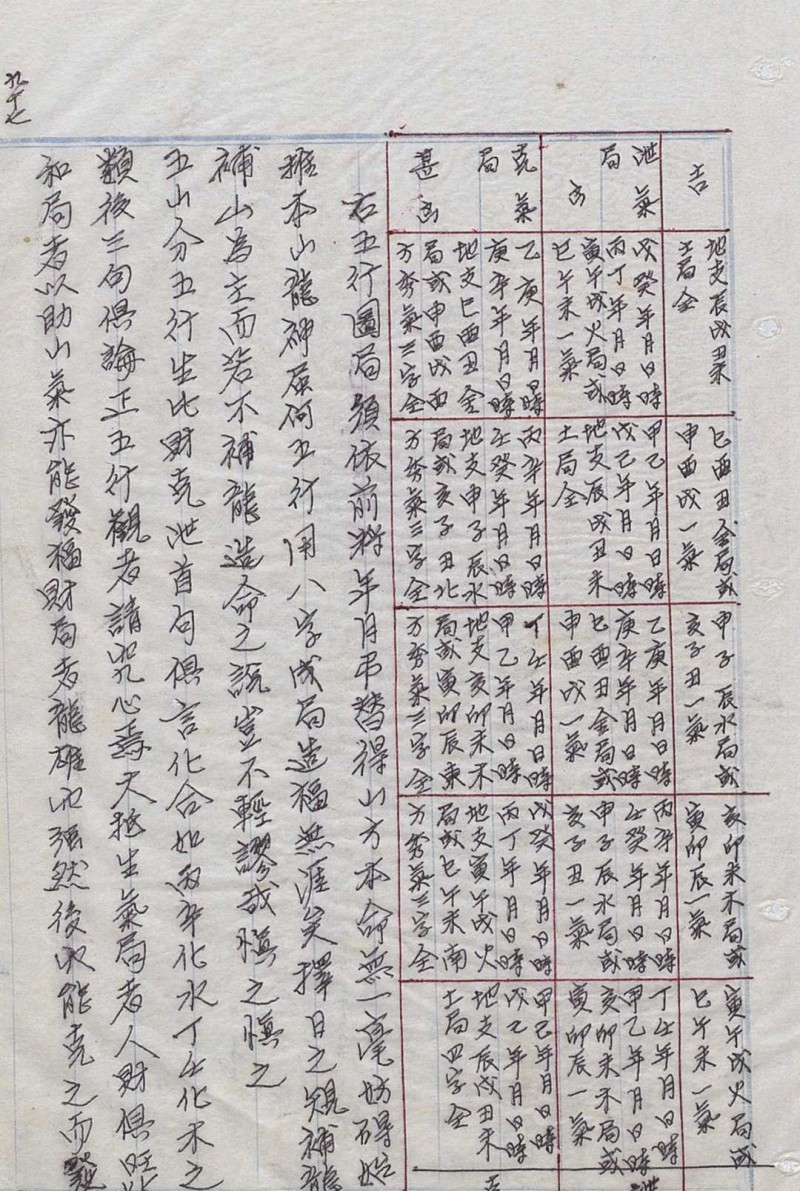 吉
地支辰戌丑未
土局全
巳酉丑金局或
申酉戌一氣
申子辰水局或
亥子丑一氣
亥卯未木局或
寅卯辰一氣
寅午戌火局或
巳午未一氣
泄氣
局
凶
戊癸年月日時
丙丁年月日時
寅午戌火局或
巳午未一氣
甲己年月日時
戊己年月日時
地支辰戌丑未
土局全
乙庚年月日時
庚辛年月日時
巳酉丑金局或
申酉戌一氣
丙辛年月日時
壬癸年月日時
申子辰水局或
亥子丑一氣
丁壬年月日時
甲乙年月日時
亥卯未木局或
寅卯辰一氣
克氣
局
甚凶
乙庚年月日時
庚辛年月日時
地支巳酉丑金
局或申酉戌西
方秀氣三字全
丙辛年月日時
壬癸年月日時
地支申子辰水
局或亥子丑北
方秀氣三字全
丁壬年月日時
甲乙年月日時
地支亥卯未木
局或寅卯辰東
方秀氣三字全
戊癸年月日時
丙丁年月日時
地支寅午戌火
局或巳午未南
方秀氣三字全
甲己年月日時
戊己年月日時
地支辰戌丑未
土局四字全
右五行圖局須依前將年月吊替得山方本命無一毫妨碍始
推本山龍神屬何五行用八字成局造福無涯矣擇日之規補龍
補山為主而若不補龍造命之說豈不輕謬哉慎之慎之
五山分五行生比財克泄首句俱言化合如丙辛化水丁壬化木之
類後三句俱論正五行觀者請究心焉大抵生氣局者人財俱旺
和局者以助山氣亦能發福財局者龍雄山強然後以能克之而發
九十七